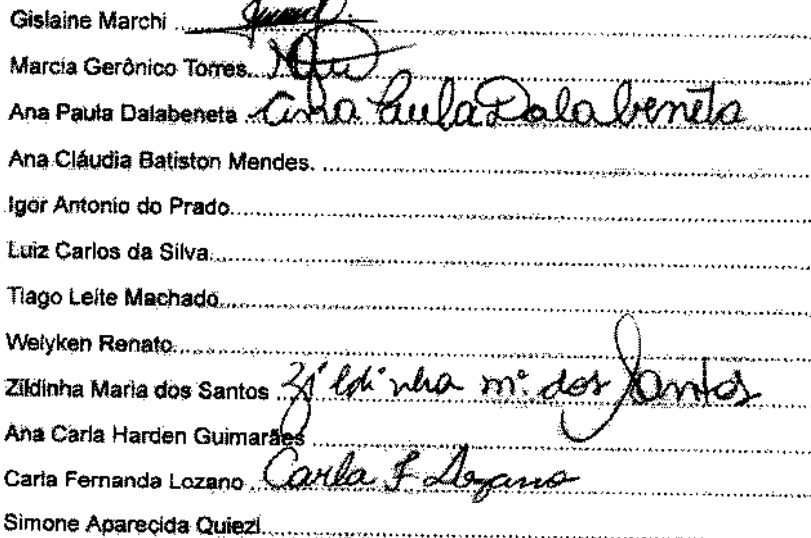 Gislaine Marchi
Marcia Gerônico Torres
Ana Paula Dalabeneta Ana Paula Dalabeneta
Ana Cláudia Batiston Mendes.
Igor Antonio do Prado
Luiz Carlos da Silva
Tiago Leite Machado
Welyken Renato
Zildinha Maria dos Santos Zildinha Mª dos Santos
Ana Carla Harden Guimarães
Carla Fernanda Lozano Carla F Lozano
Simone Aparecida Quiezi